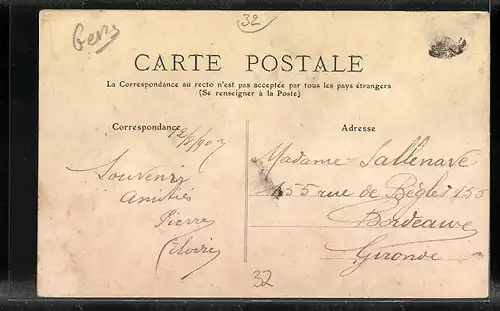 Gers
32
CARTE POSTALE
La Correspondance au recto n'est pas acceptée par tous les pays étrangers
(Se renseigner à la Poste)
Correspondance
Adresse
Souvenir
Amitiés
Pierre
Madame Sallenave
155 rue de Bègles 155
Bordeaux
Gironde
32